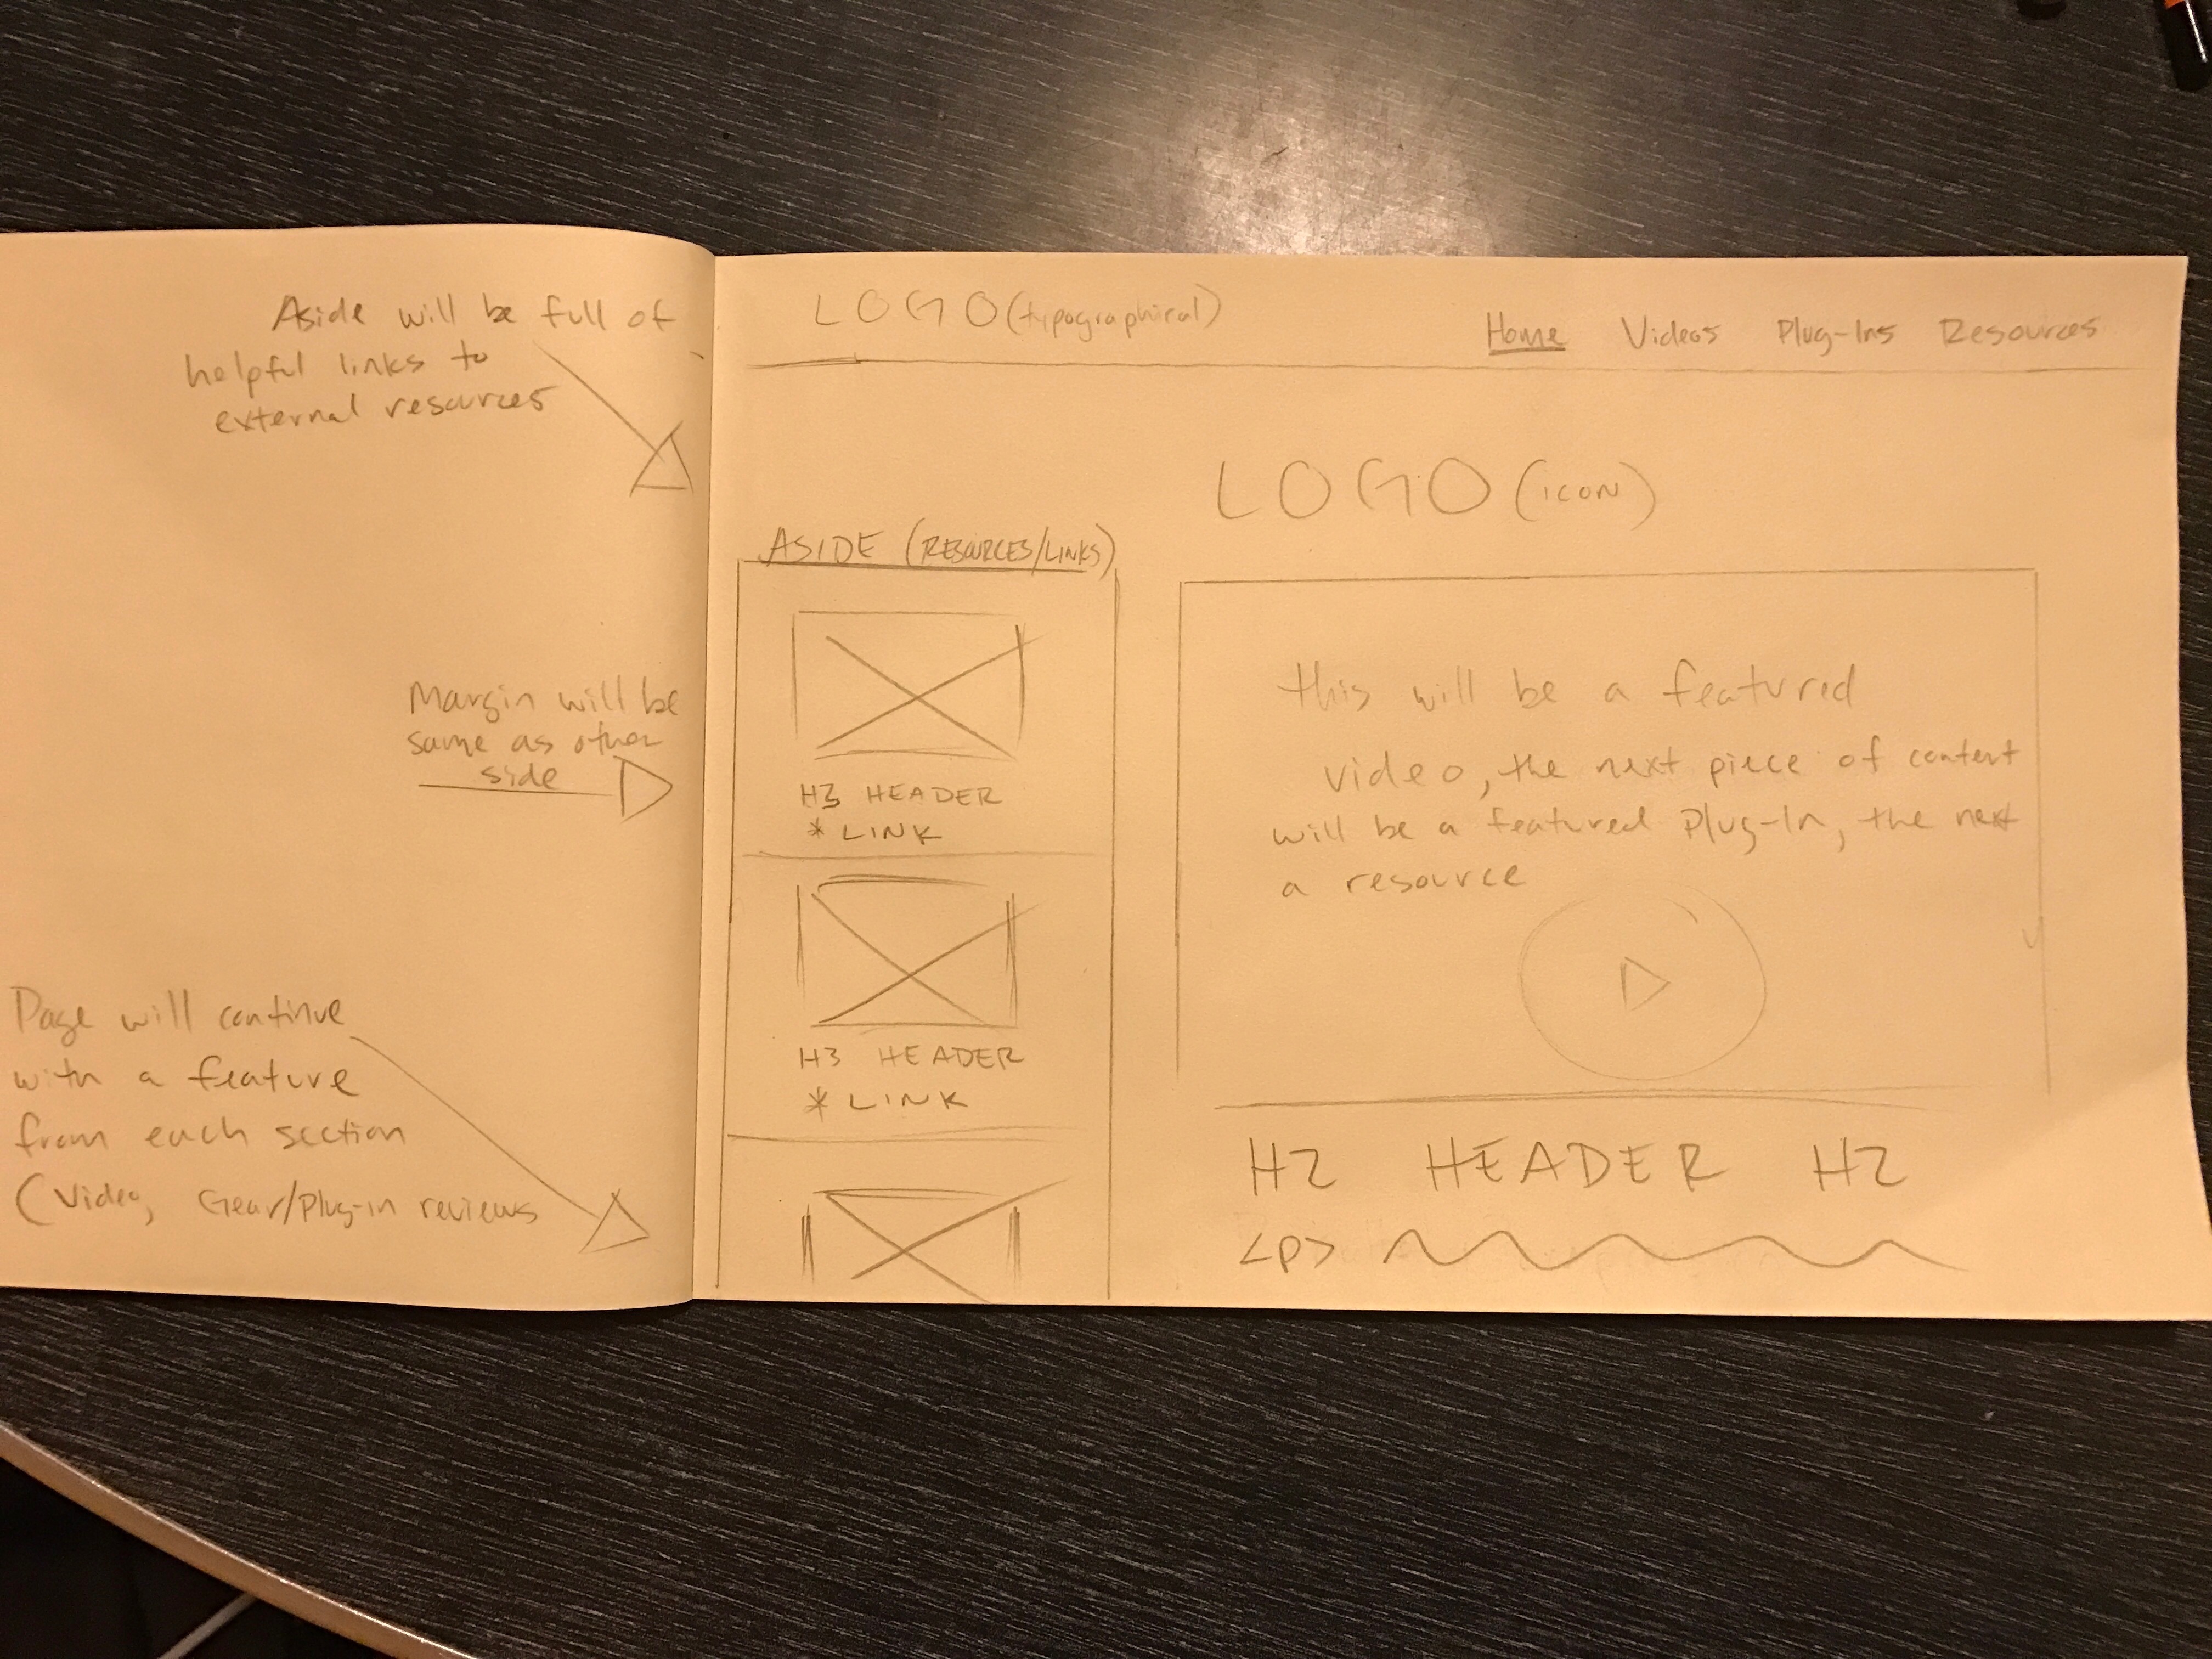 Aside will be full of
helpful links to
external resources
Margin will be
same as other
side
Page will continue
with a feature
from each section
(Video, Gear/Plug-in reviews
LOGO (typographical)
Home Videos Plug-Ins Resources
LOGO (ICON)
ASIDE (RESOURCES/LINKS)
H3 HEADER
* LINK
H3 HEADER
* LINK
this will be a featured
video, the next piece of content
will be a featured Plug-In, the next
a resource
H2 HEADER H2
<p>